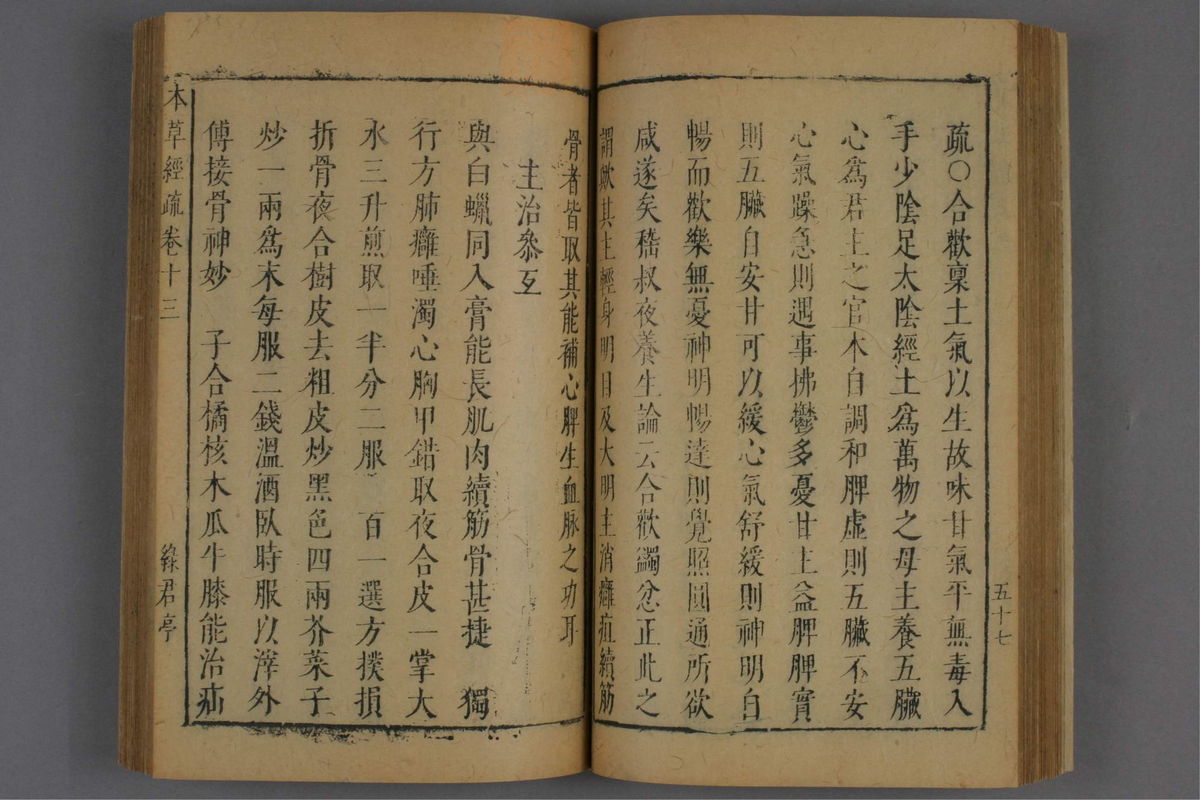 疏○合歡稟土氣以生故味甘氣平無毒入
手少陰足太陰經土爲萬物之母主養五臟
心爲君主之官本自調和脾虛則五臟不安
心氣躁急則遇事拂鬱多憂甘主益脾脾實
則五臟自安甘可以緩心氣舒緩則神明自
暢而歡樂無憂神明暢達則覺照圓通所欲
咸遂矣嵇叔夜養生論云合歡蠲忿正此之
謂歟其主輕身明目及大明主消癰疽續筋
骨者皆取其能補心脾生血脉之功耳
五十七
主治叅互
與白蠟同入膏能長肌肉續筋骨甚捷 獨
行方肺癰唾濁心胸甲錯取夜合皮一掌大
水三升煎取一半分二服 百一選方撲損
折骨夜合樹皮去粗皮炒黑色四兩芥菜子
炒一兩爲末每服二錢溫酒臥時服以滓外
傅接骨神妙 子合橘核木瓜牛膝能治疝
本草經疏卷十三
綠君亭